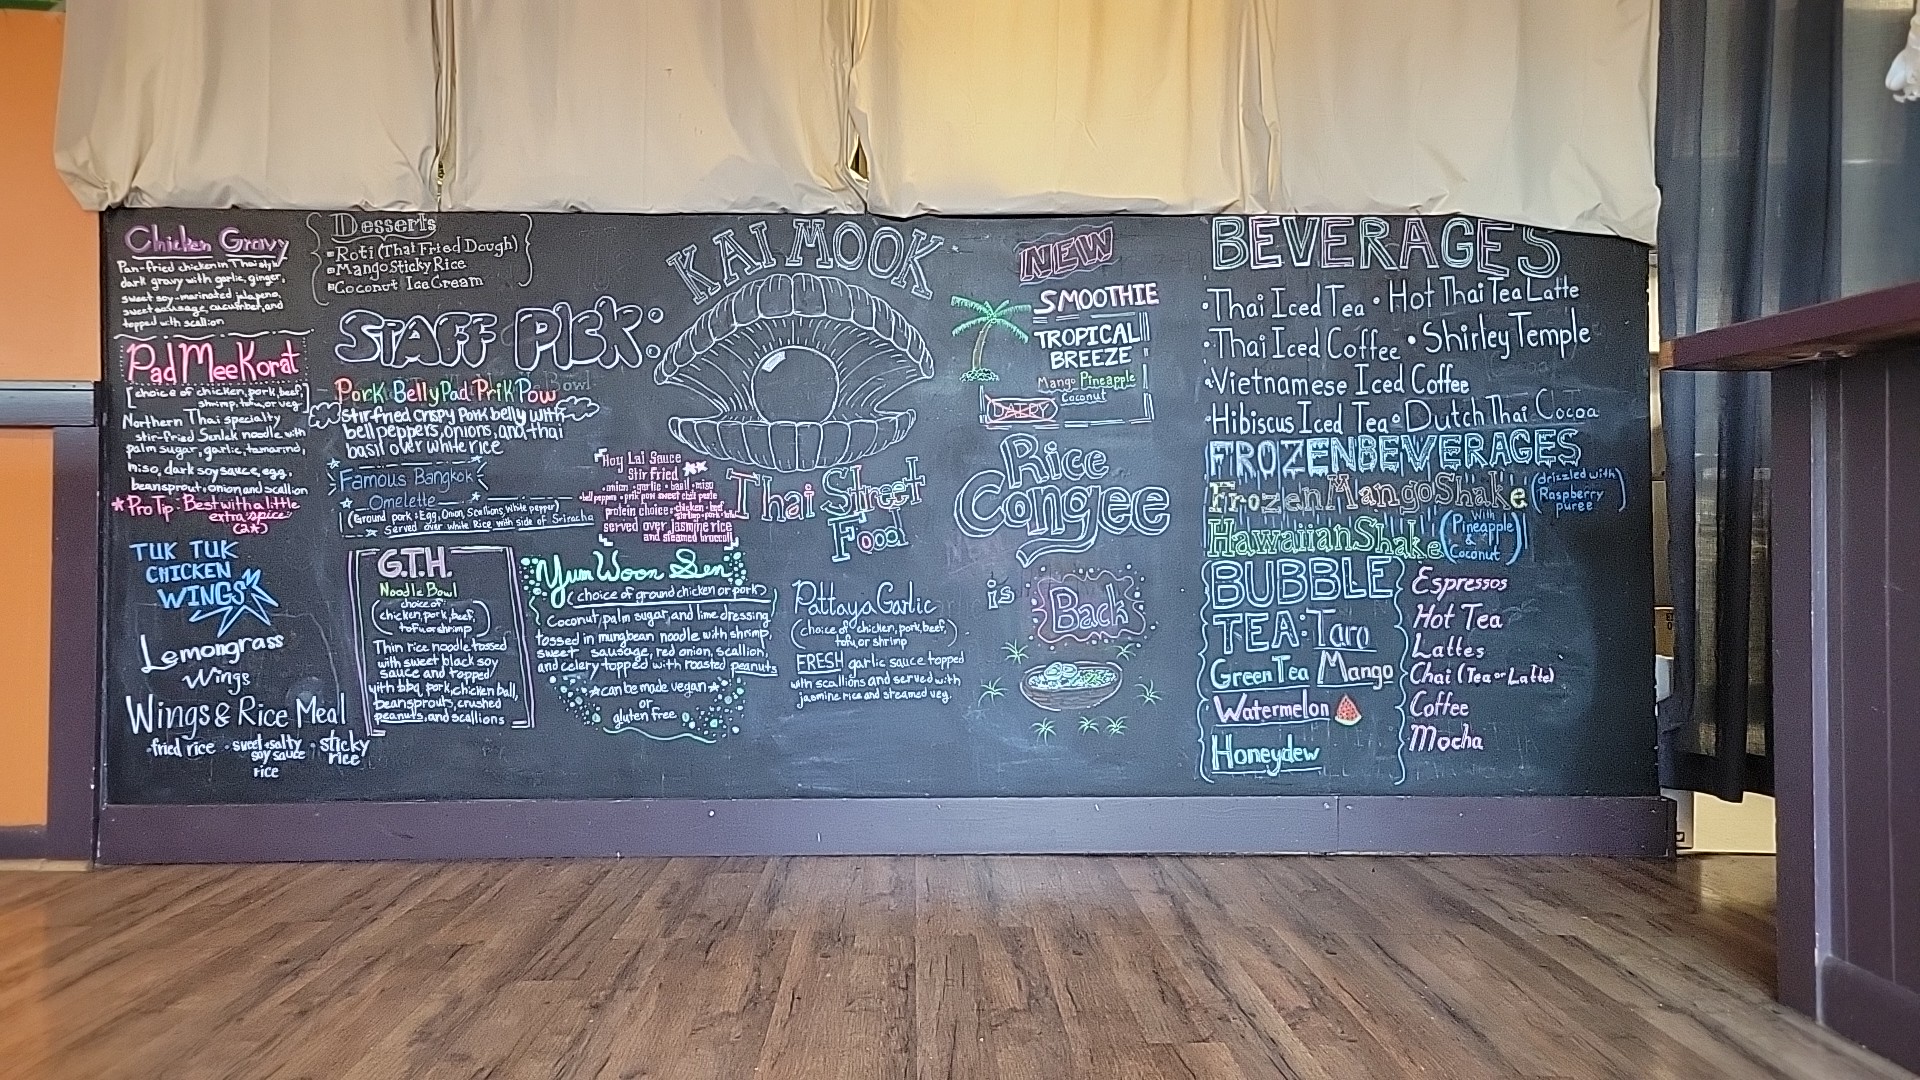 Chicken Gravy
Pan-fried chicken in Thai style
dark gravy with garlic, ginger,
sweet soy-marinated jalapeno,
sweet sausage, cucumber, and
topped with scallion
Pad Mee Korat
[choice of chicken, pork, beef,
shrimp, tofu, or veg]
Northern Thai specialty
stir-fried Senlek noodle with
palm sugar, garlic, tamarind,
miso, dark soy sauce, egg,
beansprout, onion and scallion
*Pro Tip: Best with a little
extra spice
(2*)
TUK TUK
CHICKEN
WINGS
Lemongrass
Wings
Wings & Rice Meal
• fried rice • sweet & salty • sticky
soy sauce rice
rice
Desserts
Roti (Thai Fried Dough)
Mango Sticky Rice
Coconut Ice Cream
STAFF PICK:
Pork Belly Pad Prik Pow
Bowl
stir-fried crispy pork belly with
bell peppers, onions, and thai
basil over white rice
Famous Bangkok
Omelette
(Ground pork, Egg, Onion, Scallions, White pepper)
Served over White Rice with side of Sriracha
Hoy Lai Sauce
Stir Fried
• onion • garlic • basil • miso
• bell pepper • prik pow sweet chili paste
protein choice: chicken • beef
• shrimp • pork • tofu
served over jasmine rice
and steamed broccoli
G.T.H.
Noodle Bowl
choice of
(chicken, pork, beef,
tofu or shrimp)
Thin rice noodle tossed
with sweet black soy
sauce and topped
with bbq pork, chicken ball,
beansprouts, crushed
peanuts, and scallions
Yum Woon Sen
(choice of ground chicken or pork)
Coconut, palm sugar, and lime dressing
tossed in mungbean noodle with shrimp,
sweet sausage, red onion, scallion,
and celery topped with roasted peanuts
*can be made vegan*
or
gluten free
KAI MOOK
Thai Street
Food
Pattaya Garlic
(choice of chicken, pork, beef,
tofu, or shrimp)
FRESH garlic sauce topped
with scallions and served with
jasmine rice and steamed veg.
NEW
SMOOTHIE
TROPICAL
BREEZE
Mango Pineapple
Coconut
DAIRY
Rice
Congee
is Back
BEVERAGES
• Thai Iced Tea • Hot Thai Tea Latte
• Thai Iced Coffee • Shirley Temple
• Vietnamese Iced Coffee
• Hibiscus Iced Tea • Dutch Thai Cocoa
FROZEN BEVERAGES
Frozen Mango Shake (drizzled with
Raspberry
puree)
Hawaiian Shake (With
Pineapple
&
Coconut)
BUBBLE
TEA: Taro
Green Tea Mango
Watermelon
Honeydew
Espressos
Hot Tea
Lattes
Chai (Tea or Latte)
Coffee
Mocha